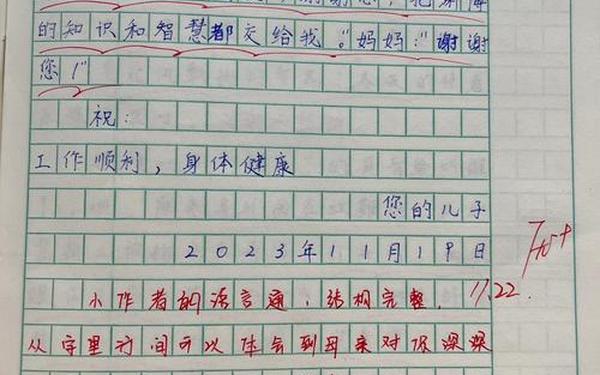 的知识和智慧都交给我。"妈妈："谢谢
您！"
祝：
工作顺利，身体健康
您的儿子
2023年11月19日
小作者的语言通，结构完整。 11.22.
从字里行间可以体会到母亲对你深深